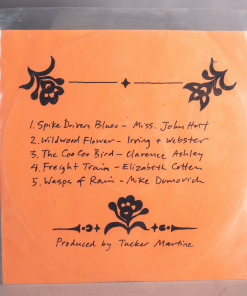 1. Spike Driver Blues - Miss. John Hurt
2. Wildwood Flower - Irving + Webster
3. The Coo Coo Bird - Clarence Ashley
4. Freight Train - Elizabeth Cotten
5. Wasps of Rain - Mike Dumovich
Produced by Tucker Martine